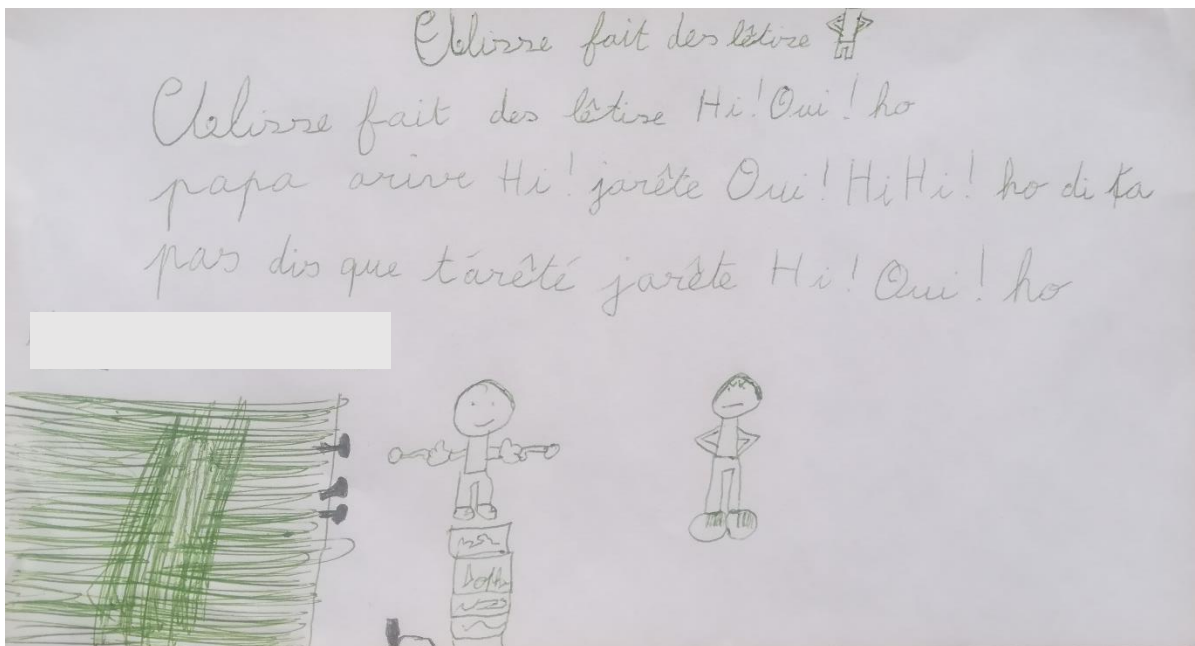 Ulisse fait des bêtise
Ulisse fait des bêtise Hi! Oui! ho
papa arive Hi! jarête Oui! HiHi! ho di ta
pas dis que tárêté jarête Hi! Oui! ho